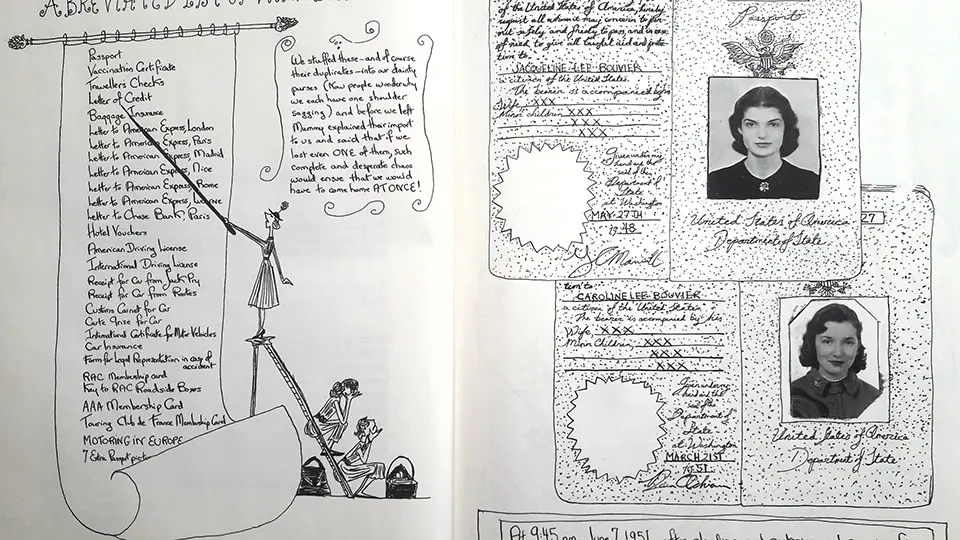 A BREVIATED LIST OF
Passport
Vaccination Certificate
Travellers Checks
Letter of Credit
Baggage Insurance
Letter to American Express, London
Letter to American Express, Paris
Letter to American Express, Madrid
Letter to American Express, Nice
Letter to American Express, Rome
Letter to American Express, Lucerne
Letter to Chase Bank, Paris
Hotel Vouchers
American Driving License
International Driving License
Receipt for Car from Jack Pry
Receipt for Car from Rootes
Customs Carnet for Car
Carte Grise for Car
International Certificate for Motor Vehicles
Car Insurance
Form for Legal Representation in case of
accident
RAC Membership card
Key to RAC Roadside Boxes
AAA Membership Card
Touring Club de France Membership Card
MOTORING IN EUROPE
7 Extra Passport pict
We stuffed these—and of course
their duplicates—into our dainty
purses (Now people wonder why
we each have one shoulder
sagging) and before we left
Mummy explained their import
to us and said that if we
lost even ONE of them, such
complete and desperate chaos
would ensue that we would
have to come home AT ONCE!
of the United States of America, hereby
request all whom it may concern to per
mit safely and freely to pass, and in case
of need to give all lawful aid and prote
tion to
JACQUELINE LEE BOUVIER
a citizen of the United States.
The bearer is accompanied by his
Wife, XXX
Minor children, XXX
XXX
Given under my
hand and the
seal of the
Department of
State
at Washington
MAY 27TH
1948
Passport
United States of America
Department of State
27
tion to
CAROLINE LEE BOUVIER
a citizen of the United States
The bearer is accompanied by his
Wife, XXX
Minor Children, XXX
XXX
XXX
Given under my
hand and the
Department of
State
at Washington
MARCH 21ST
1951
United States of America
Department of State
At 9:45 pm June 7 1951